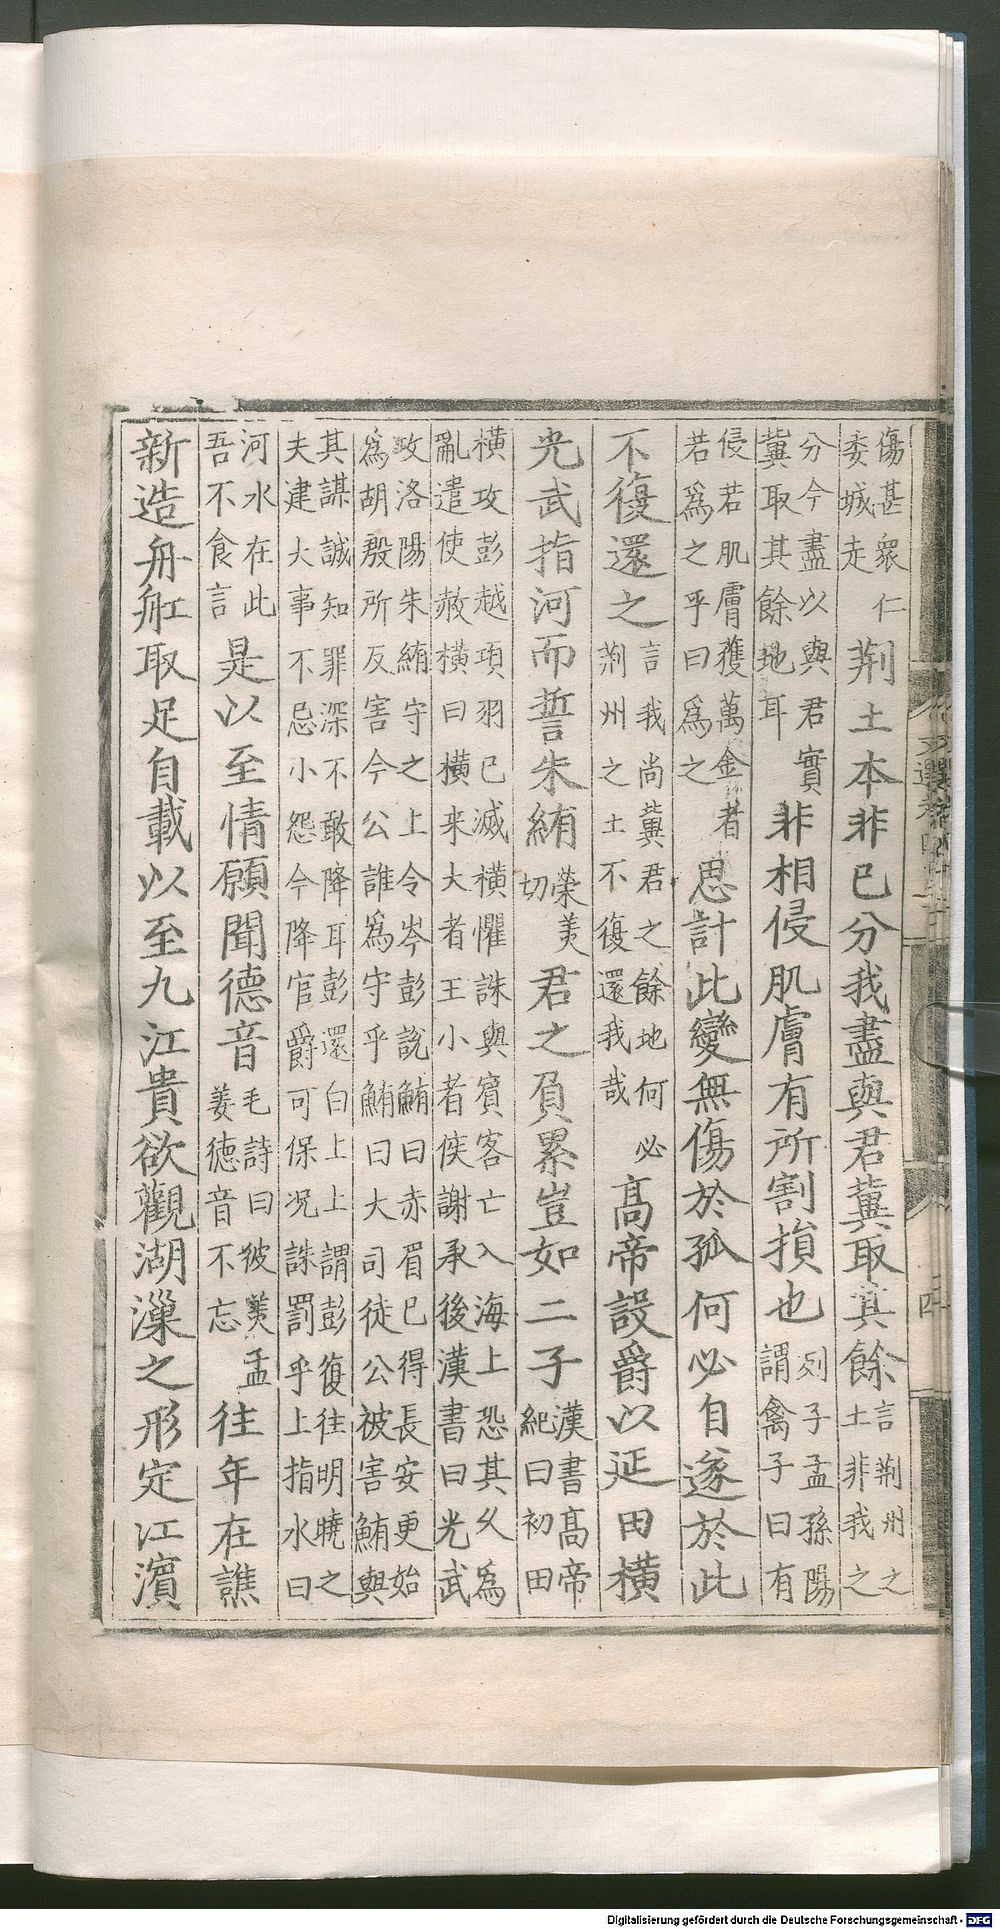 傷甚衆仁
委城走荆土本非已分我盡與君冀取其餘言荆州之
土非我之
分今盡以與君實
冀取其餘地耳非相侵肌膚有所割損也列子孟孫陽
謂禽子曰有
侵若肌膚獲萬金者
若爲之乎曰爲之思計此變無傷於孤何必自遂於此
不復還之言我尚冀君之餘地何必
荆州之土不復還我哉高帝設爵以延田横
光武指河而誓朱鮪榮美
切君之負累豈如二子漢書高帝
紀曰初田
横攻彭越項羽已滅横懼誅與賓客亡入海上恐其久爲
亂遣使赦横曰横来大者王小者侯謝承後漢書曰光武
攻洛陽朱鮪守之上令岑彭說鮪曰赤眉已得長安更始
爲胡殷所反害今公誰爲守乎鮪曰大司徒公被害鮪與
其謀誠知罪深不敢降耳彭還白上上謂彭復往明曉之
夫建大事不忌小怨今降官爵可保况誅罰乎上指水曰
河水在此
吾不食言是以至情願聞德音毛詩曰彼美孟
姜德音不忘往年在譙
新造舟舡取足自載以至九江貴欲觀湖漅之形定江濱
文選卷四十二
Digitalisierung gefördert durch die Deutsche Forschungsgemeinschaft - DFG